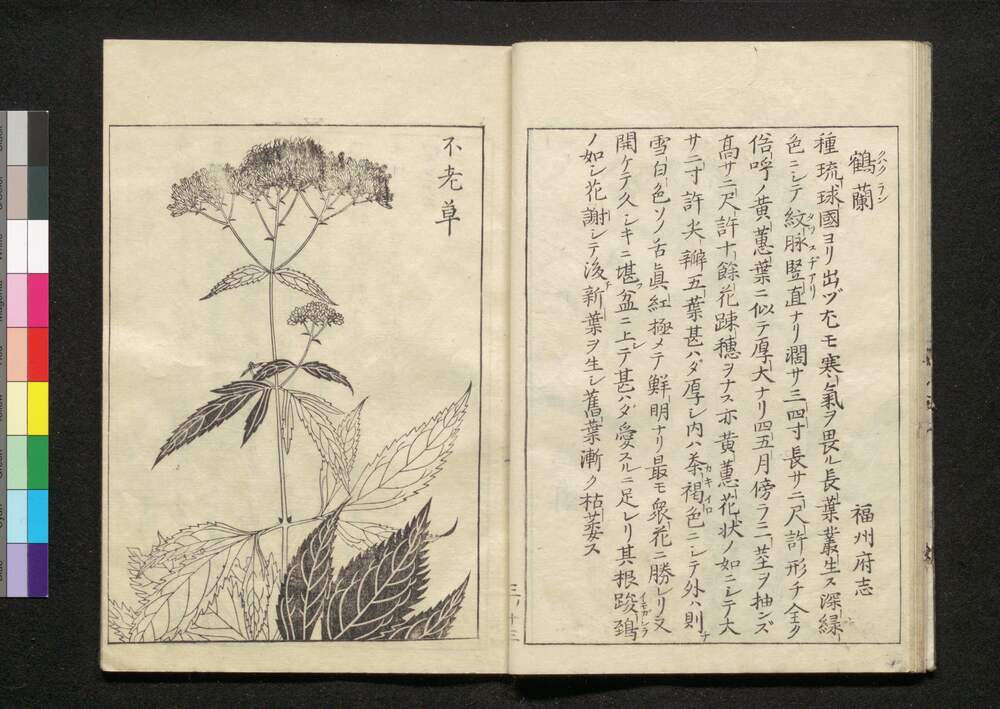 鶴蘭 福州府志
種琉球國ヨリ出ヅ尤モ寒氣ヲ畏ル長葉叢生ス深緑
色ニシテ紋脉竪直ナリ濶サ三四寸長サ二尺許形チ全ク
俗呼ノ黄蕙葉ニ似テ厚大ナリ四五月傍ラニ一茎ヲ抽ンズ
高サ二尺許十餘花踈穗ヲナス亦黄蕙花状ノ如ニシテ大
サ二寸許尖瓣五葉甚ハダ厚シ内ハ茶褐色ニシテ外ハ則
雪白色ソノ舌眞紅極メテ鮮明ナリ最モ衆花ニ勝レリ又
開ケテ久シキニ堪フ盆ニ上シテ甚ハダ愛スルニ足レリ其根踆鵄
ノ如シ花謝シテ後チ新葉ヲ生シ舊葉漸ク枯萎ス
不老草
三ノ十三